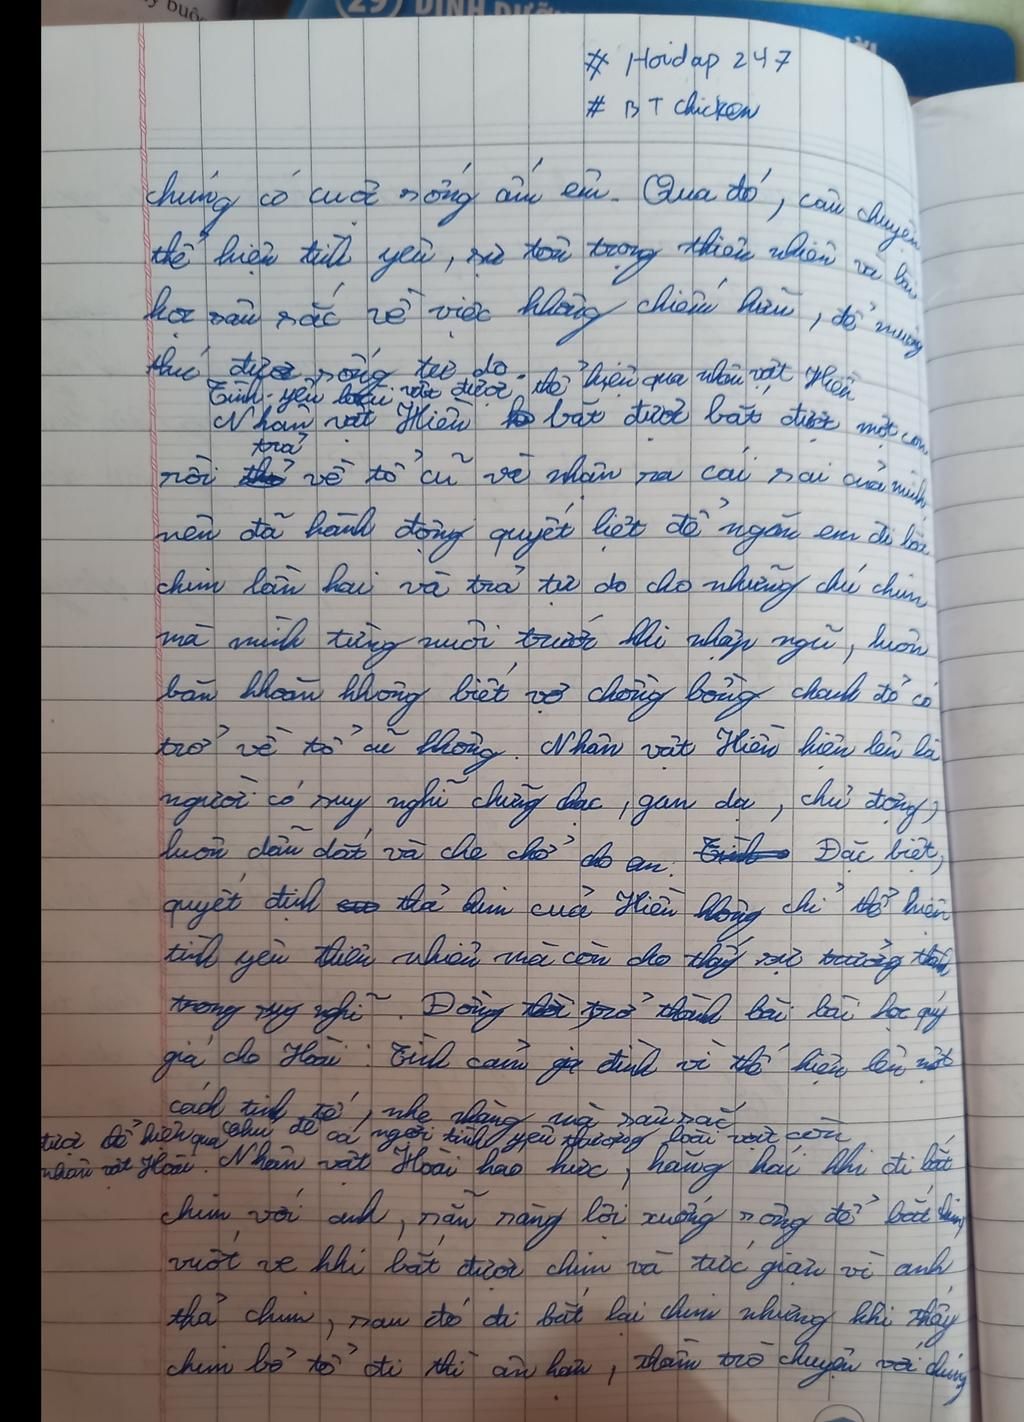 29 DINH DƯỠ
# Hoidap 247
# BT chicken
chúng có cuộc sống ấm êm. Qua đó, câu chuyện
thể hiện tình yêu, sự tôn trọng thiên nhiên và bài
học sâu sắc về việc không chiếm hữu, để muông
thú được sống tự do.
Tình yêu loài vật được thể hiện qua nhân vật Hiền
Nhân vật Hiền bắt được bắt được một con
rồi trả về tổ cũ vì nhận ra cái sai của mình
nên đã hành động quyết liệt để ngăn em đi bắt
chim lần hai và trả tự do cho những chú chim
mà mình từng nuôi trước khi nhập ngũ, luôn
băn khoăn không biết vợ chồng bồng chanh đỏ có
trở về tổ cũ không. Nhân vật Hiền hiện lên là
người có suy nghĩ chững chạc, gan dạ, chủ động,
luôn dẫn dắt và che chở cho em. Đặc biệt,
quyết định thả chim của Hiền không chỉ thể hiện
tình yêu thiên nhiên mà còn cho thấy sự trưởng thành
trong suy nghĩ. Đồng thời trở thành bài bài học quý
giá cho Hoài. Tình cảm gia đình vì thế hiện lên một
cách tinh tế, nhẹ nhàng mà sâu sắc
Chủ đề ca ngợi tình yêu thương loài vật còn
được thể hiện qua
nhân vật Hoài. Nhân vật Hoài háo hức, hăng hái khi đi bắt
chim với anh, sẵn sàng lội xuống sông để bắt chim,
vuốt ve khi bắt được chim và tức giận vì anh
thả chim, sau đó đi bắt lại chim nhưng khi thấy
chim bỏ tổ đi thì ân hận, thầm trò chuyện với chúng